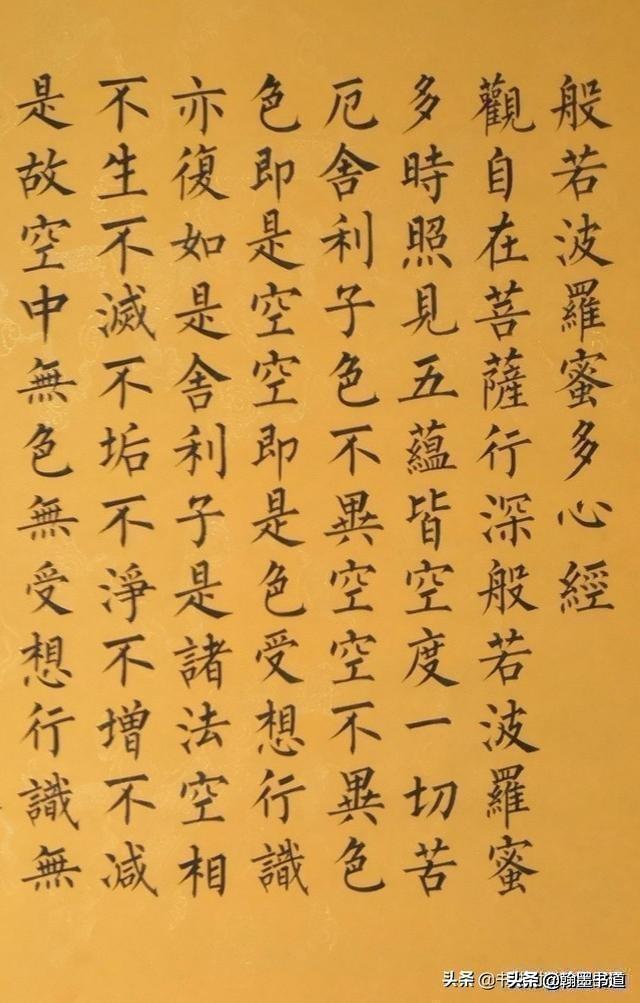 般若波羅蜜多心經
觀自在菩薩行深般若波羅蜜
多時照見五蘊皆空度一切苦
厄舍利子色不異空空不異色
色即是空空即是色受想行識
亦復如是舍利子是諸法空相
不生不滅不垢不淨不增不減
是故空中無色無受想行識無
头条 @翰墨书道